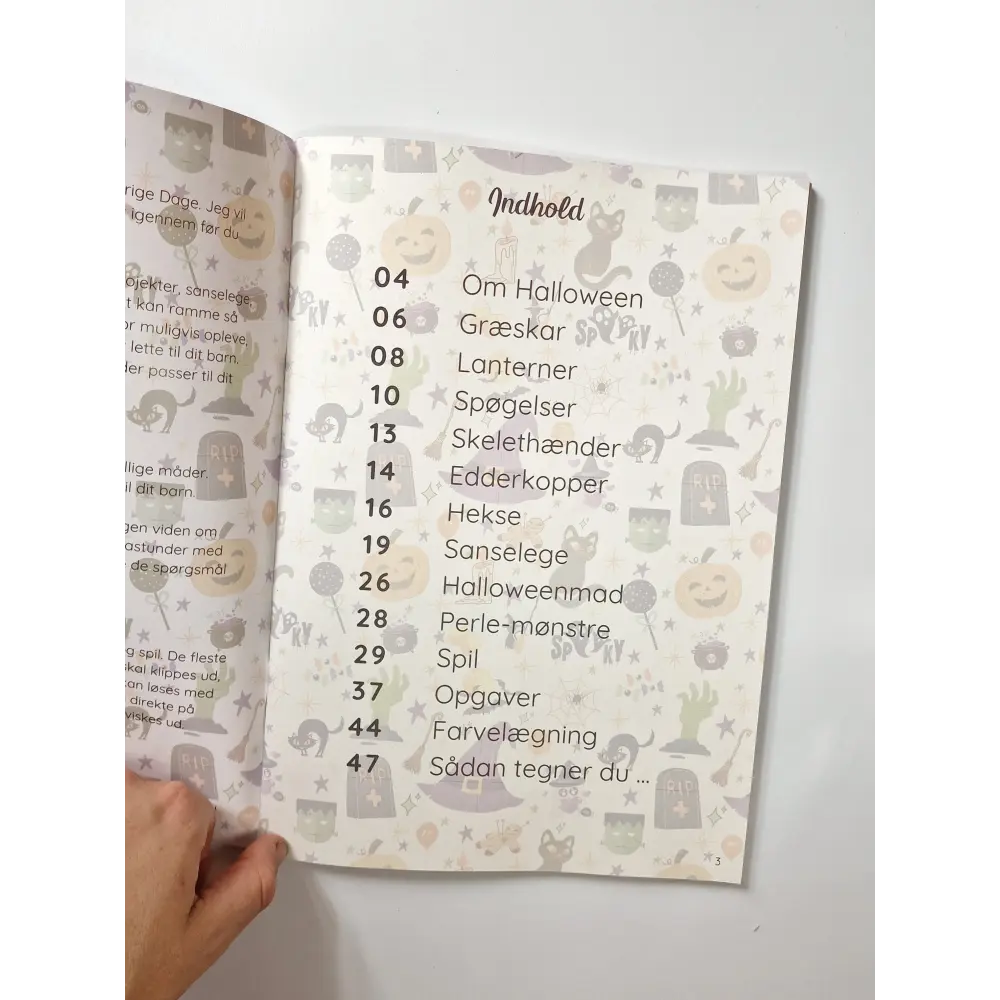 rige Dage. Jeg vil
igennem før du
ojekter, sanselege,
t kan ramme så
or muligvis opleve,
lette til dit barn.
der passer til dit
llige måder.
il dit barn.
gen viden om
astunder med
de spørgsmål
g spil. De fleste
skal klippes ud,
kan løses med
direkte på
viskes ud.
Indhold
04 Om Halloween
06 Græskar
08 Lanterner
10 Spøgelser
13 Skelethænder
14 Edderkopper
16 Hekse
19 Sanselege
26 Halloweenmad
28 Perle-mønstre
29 Spil
37 Opgaver
44 Farvelægning
47 Sådan tegner du ...
SPOOKY
RIP
SPOOKY
RIP
3